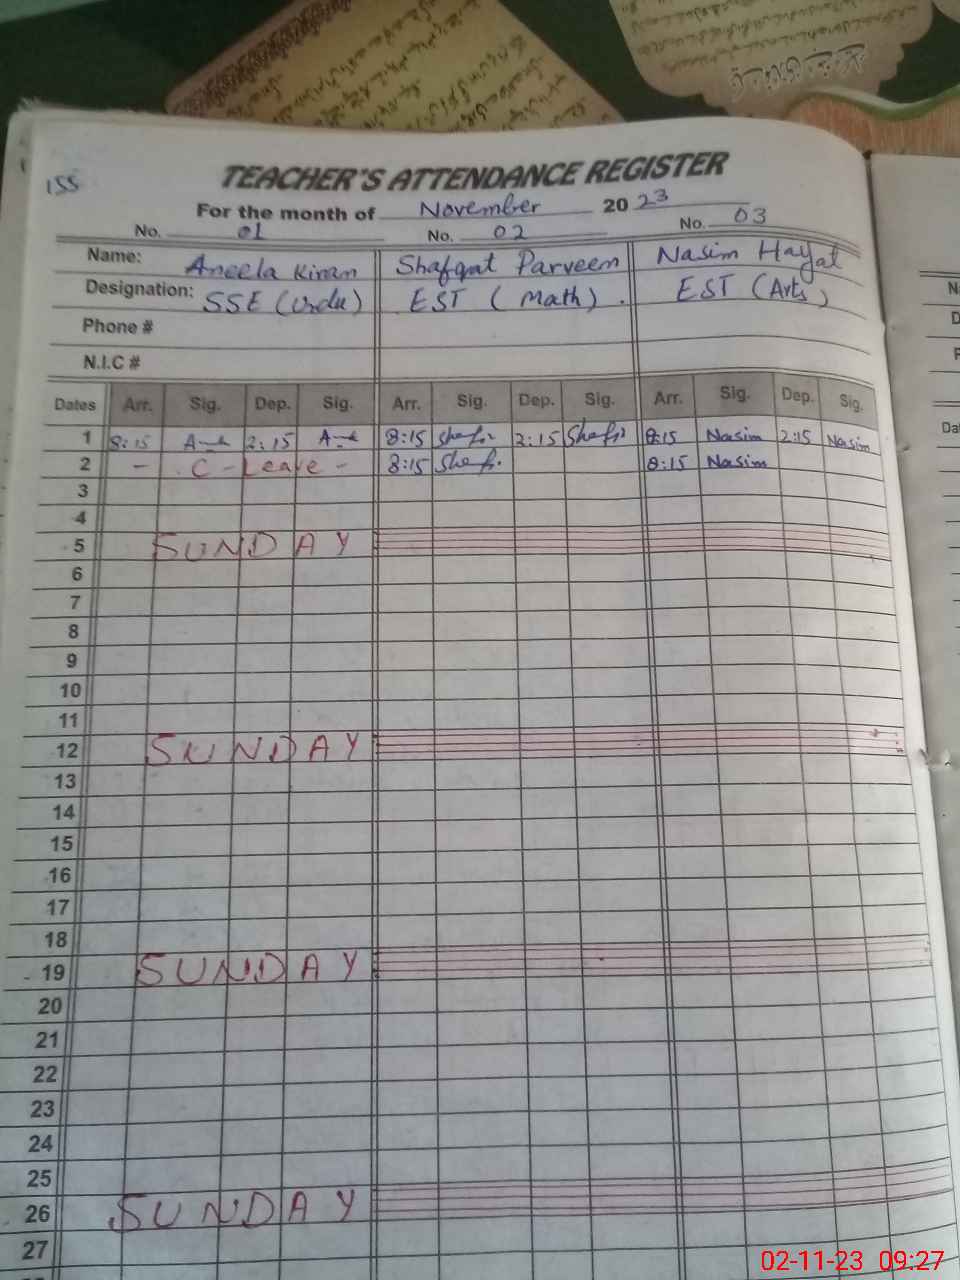 155
TEACHER'S ATTENDANCE REGISTER
For the month of November 20 23
No. 01 No. 02 No. 03
Name: Aneela Kiran Shafqat Parveen Nasim Hayat
Designation: SSE (Urdu) EST (Math). EST (Arts)
Phone #
N.I.C #
Dates Arr. Sig. Dep. Sig. Arr. Sig. Dep. Sig. Arr. Sig. Dep. Sig.
1 8:15 2:15 8:15 2:15 8:15 Nasim 2:15 Nasim
2 - C - Leave - 8:15 8:15 Nasim
3
4
5 SUNDAY
6
7
8
9
10
11
12 SUNDAY
13
14
15
16
17
18
19 SUNDAY
20
21
22
23
24
25
26 SUNDAY
27
02-11-23 09:27